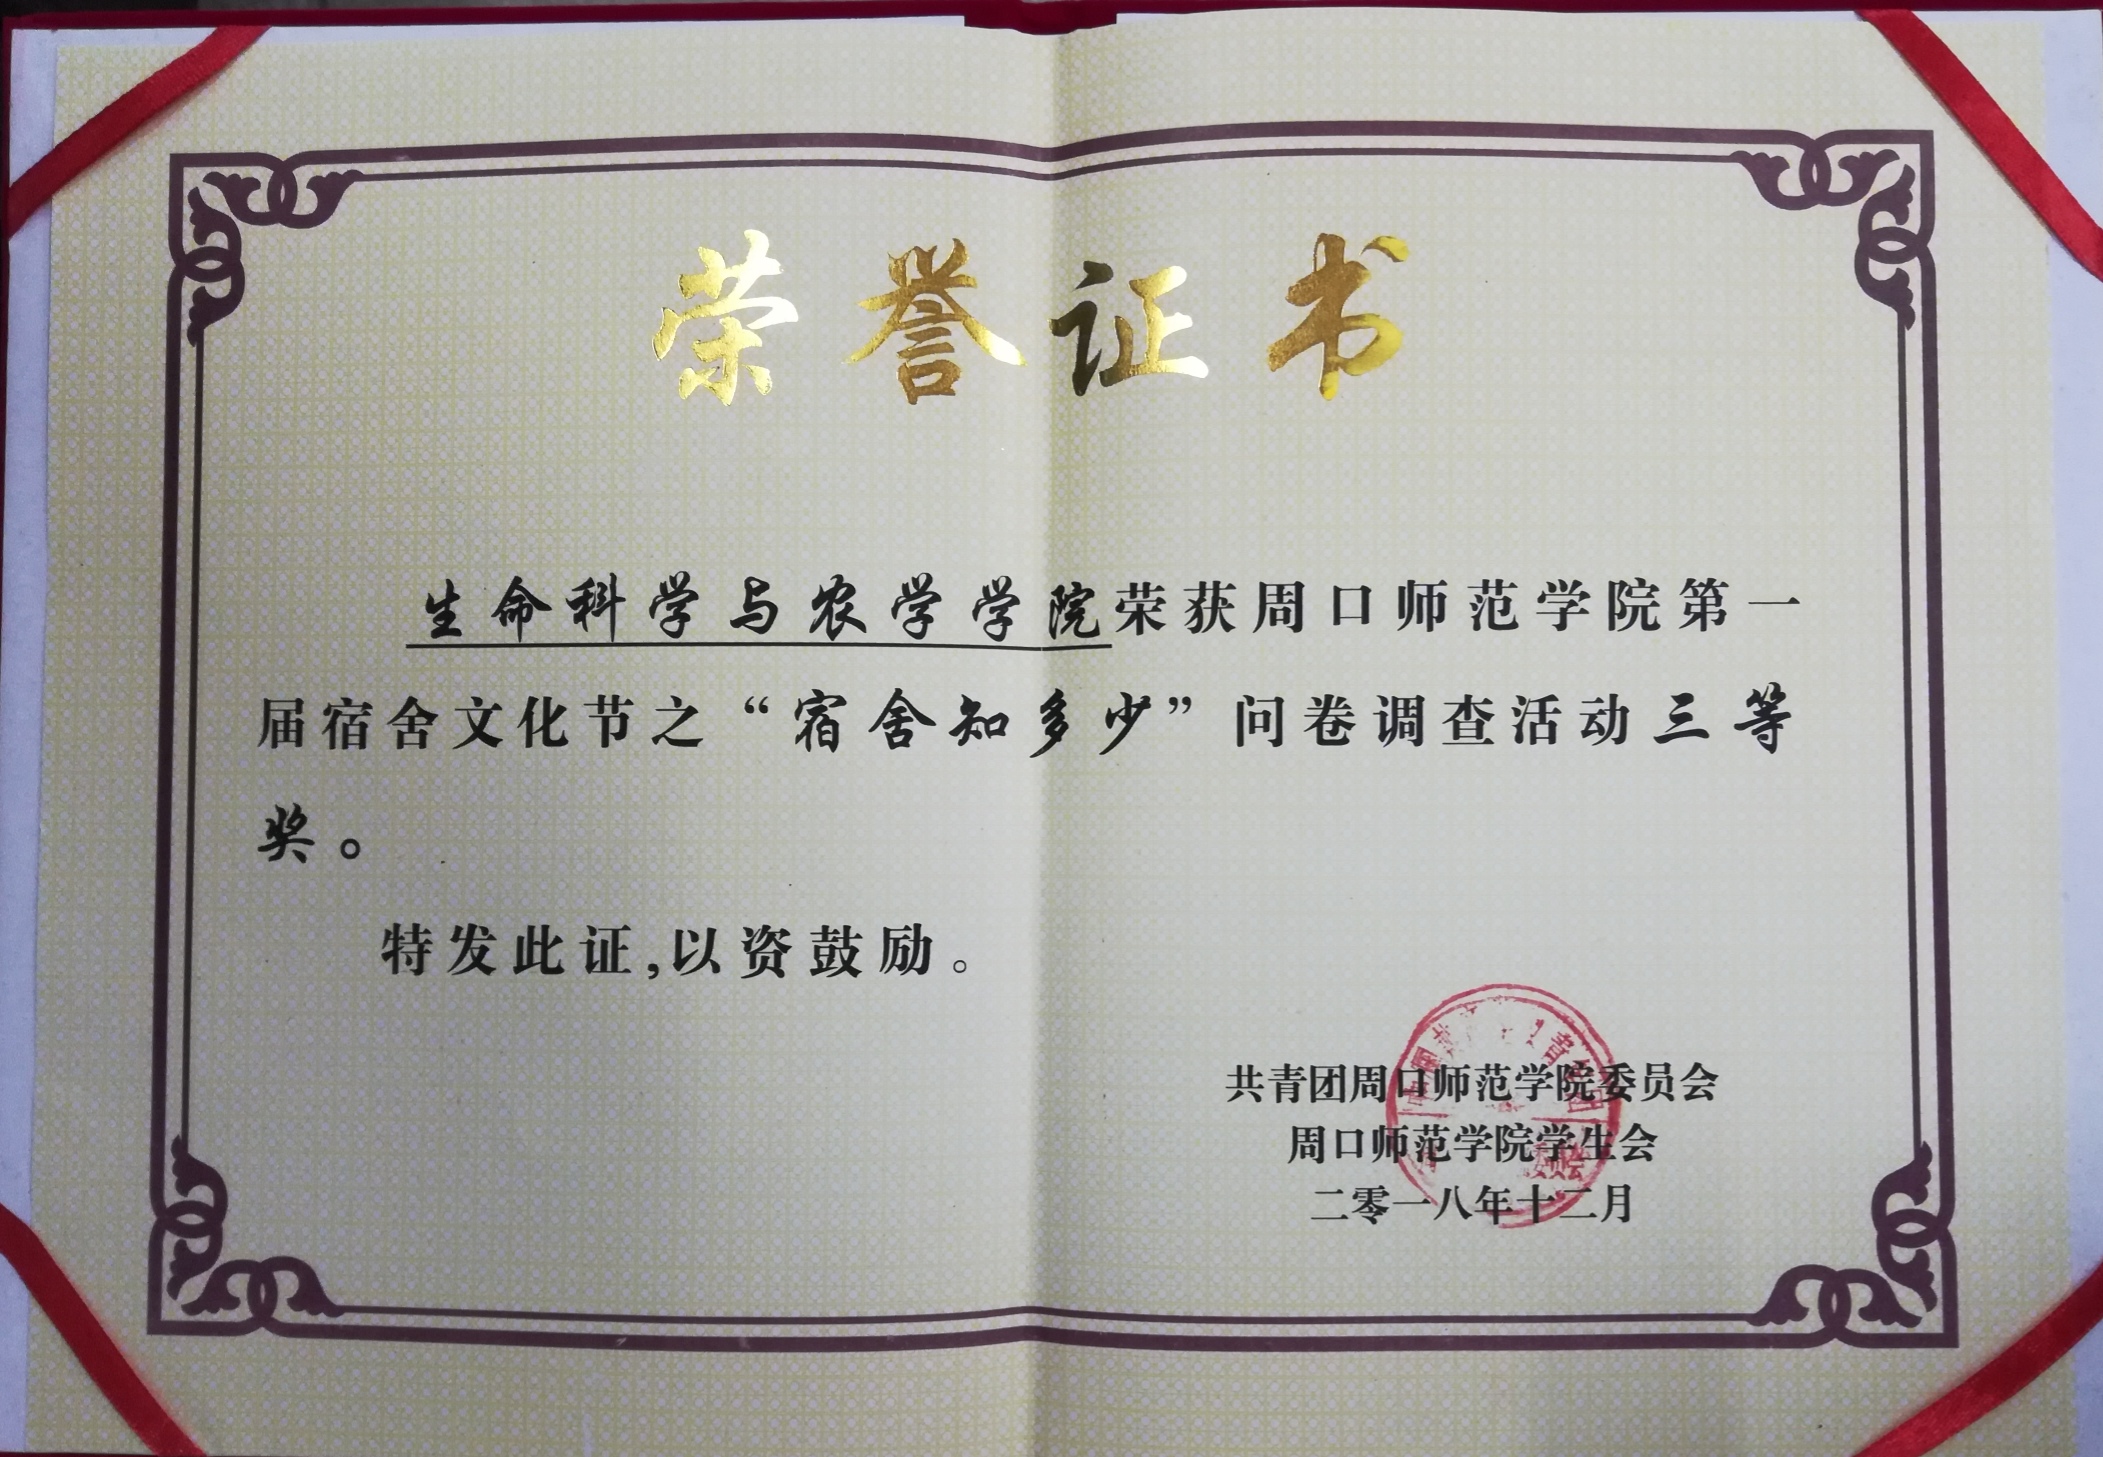 荣誉证书
生命科学与农学学院荣获周口师范学院第一
届宿舍文化节之“宿舍知多少”问卷调查活动三等
奖。
特发此证,以资鼓励。
共青团周口师范学院委员会
周口师范学院学生会
二零一八年十二月